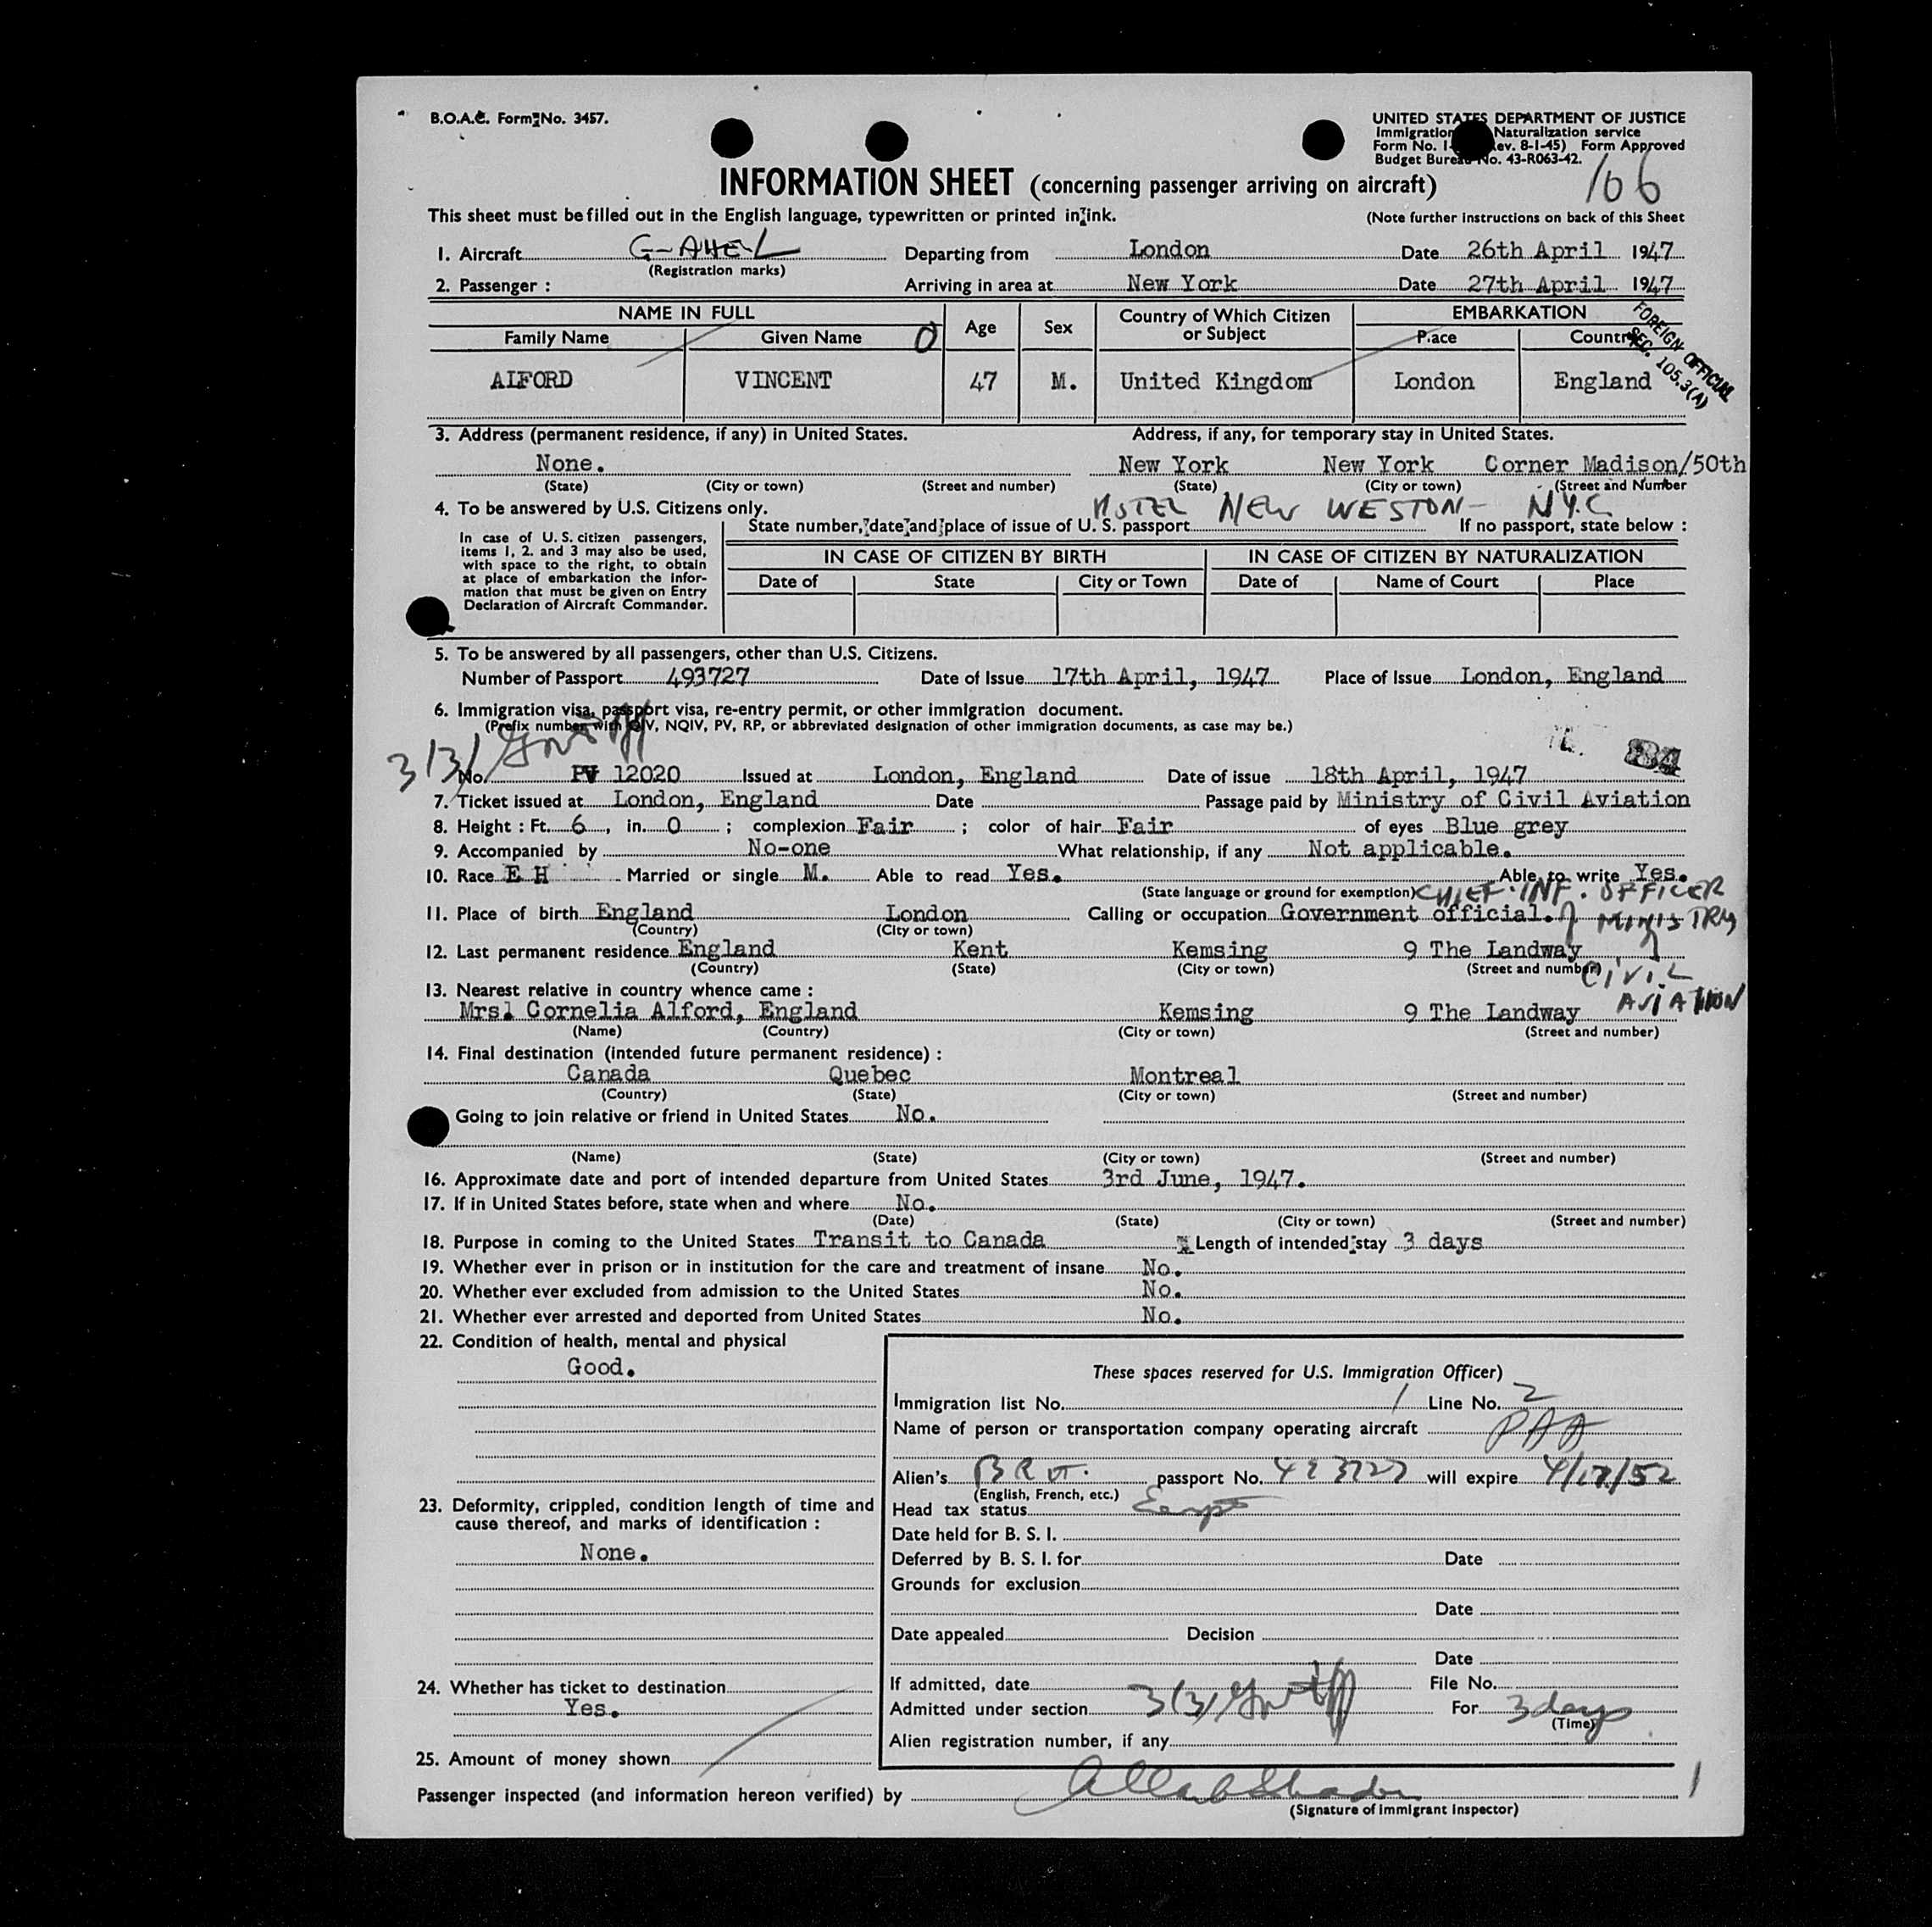 B.O.A.C. Form No. 3457.
UNITED STATES DEPARTMENT OF JUSTICE
Immigration Naturalization service
Form No. I- ev. 8-1-45) Form Approved
Budget Bureau No. 43-R063-42.
106
INFORMATION SHEET (concerning passenger arriving on aircraft)
This sheet must be filled out in the English language, typewritten or printed in ink. (Note further instructions on back of this Sheet
1. Aircraft G-AHEL Departing from London Date 26th April 1947
(Registration marks)
2. Passenger : Arriving in area at New York Date 27th April 1947
NAME IN FULL Age Sex Country of Which Citizen or Subject EMBARKATION
Family Name Given Name O Place Country
FOREIGN OFFICIAL
SEC. 105.3(A)
ALFORD VINCENT 47 M. United Kingdom London England
3. Address (permanent residence, if any) in United States. Address, if any, for temporary stay in United States.
None. New York New York Corner Madison/50th
(State) (City or town) (Street and number) (State) (City or town) (Street and Number
HOTEL NEW WESTON - N.Y.C
4. To be answered by U.S. Citizens only.
State number, date and place of issue of U. S. passport If no passport, state below :
In case of U. S. citizen passengers,
items 1, 2. and 3 may also be used,
with space to the right, to obtain
at place of embarkation the infor-
mation that must be given on Entry
Declaration of Aircraft Commander.
IN CASE OF CITIZEN BY BIRTH IN CASE OF CITIZEN BY NATURALIZATION
Date of State City or Town Date of Name of Court Place
5. To be answered by all passengers, other than U.S. Citizens.
Number of Passport 493727 Date of Issue 17th April, 1947 Place of Issue London, England
6. Immigration visa, passport visa, re-entry permit, or other immigration document.
(Prefix number with QIV, NQIV, PV, RP, or abbreviated designation of other immigration documents, as case may be.)
3(3) Govt off
84
No. PV 12020 Issued at London, England Date of issue 18th April, 1947
7. Ticket issued at London, England Date Passage paid by Ministry of Civil Aviation
8. Height : Ft. 6, in. 0 ; complexion Fair ; color of hair Fair of eyes Blue grey
9. Accompanied by No-one What relationship, if any Not applicable.
10. Race E H Married or single M. Able to read Yes. Able to write Yes.
(State language or ground for exemption) CHIEF. INF. OFFICER
11. Place of birth England London Calling or occupation Government official. MINISTRY
(Country) (City or town)
12. Last permanent residence England Kent Kemsing 9 The Landway
(Country) (State) (City or town) (Street and number) CIVIL
13. Nearest relative in country whence came : AVIATION
Mrs. Cornelia Alford, England Kemsing 9 The Landway
(Name) (Country) (City or town) (Street and number)
14. Final destination (intended future permanent residence) :
Canada Quebec Montreal
(Country) (State) (City or town) (Street and number)
Going to join relative or friend in United States No.
(Name) (State) (City or town) (Street and number)
16. Approximate date and port of intended departure from United States 3rd June, 1947.
17. If in United States before, state when and where No.
(Date) (State) (City or town) (Street and number)
18. Purpose in coming to the United States Transit to Canada Length of intended stay 3 days
19. Whether ever in prison or in institution for the care and treatment of insane No.
20. Whether ever excluded from admission to the United States No.
21. Whether ever arrested and deported from United States No.
22. Condition of health, mental and physical
Good.
23. Deformity, crippled, condition length of time and
cause thereof, and marks of identification :
None.
24. Whether has ticket to destination
Yes.
25. Amount of money shown
These spaces reserved for U.S. Immigration Officer)
Immigration list No. 1 Line No. 2
Name of person or transportation company operating aircraft PAA
Alien's BRIT. passport No. 493727 will expire 4/17/52
(English, French, etc.)
Head tax status Exempt
Date held for B. S. I.
Deferred by B. S. I. for Date
Grounds for exclusion
Date
Date appealed Decision
Date
If admitted, date File No.
Admitted under section 3(3) Govt off For 3 days
(Time)
Alien registration number, if any
Passenger inspected (and information hereon verified) by
(Signature of Immigrant Inspector)
1